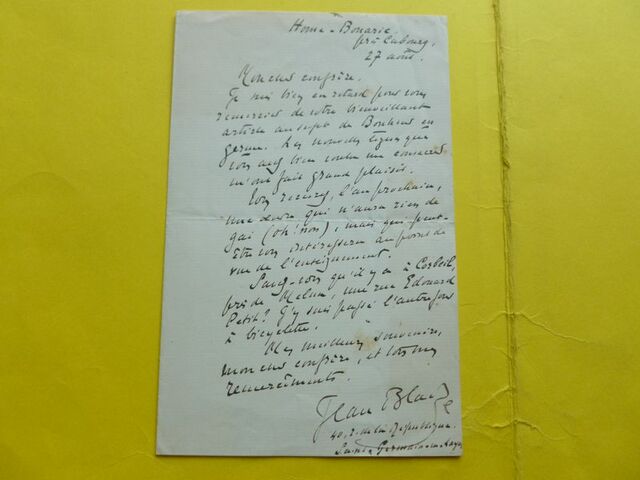 Home-Bonarie,
près Cabourg,
27 août.
Mon cher confrère.
Je suis bien en retard pour vous
remercier de votre bienveillant
article au sujet de Bonheur en
germe. Les nouvelles lignes que
vous avez bien voulu me consacrer
m'ont fait grand plaisir.
Vous recevrez, l'an prochain,
une œuvre qui n'aura rien de
gai (oh! non), mais qui peut-
être vous intéressera au point de
vue de l'enseignement.
Savez-vous qu'il y a à Corbeil,
près de Melun, une rue Edouard
Petit? J'y suis passé l'autre fois
à bicyclette.
Mes meilleurs souvenirs,
mon cher confrère, et tous mes
remerciements.
Jean Blaize
40, r. de la République.
Saint-Germain-en-Laye